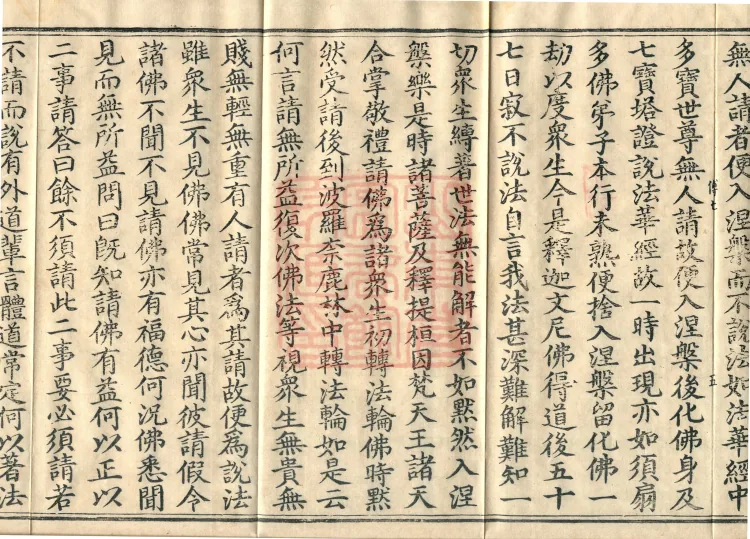 無人請者便入涅槃而不說法如法華經中
多寶世尊無人請故便入涅槃後化佛身及
七寶塔證說法華經故一時出現亦如須扇
多佛弟子本行未熟便捨入涅槃留化佛一
劫以度衆生今是釋迦文尼佛得道後五十
七日寂不說法自言我法甚深難解難知一
切衆生縛著世法無能解者不如默然入涅
槃樂是時諸菩薩及釋提桓因梵天王諸天
合掌敬禮請佛爲諸衆生初轉法輪佛時默
然受請後到波羅奈鹿林中轉法輪如是云
何言請無所益復次佛法等視衆生無貴無
賤無輕無重有人請者爲其請故便爲說法
雖衆生不見佛佛常見其心亦聞彼請假令
諸佛不聞不見請佛亦有福德何況佛悉聞
見而無所益問曰旣知請佛有益何以正以
二事請答曰餘不須請此二事要必須請若
不請而說有外道輩言體道常定何以著法